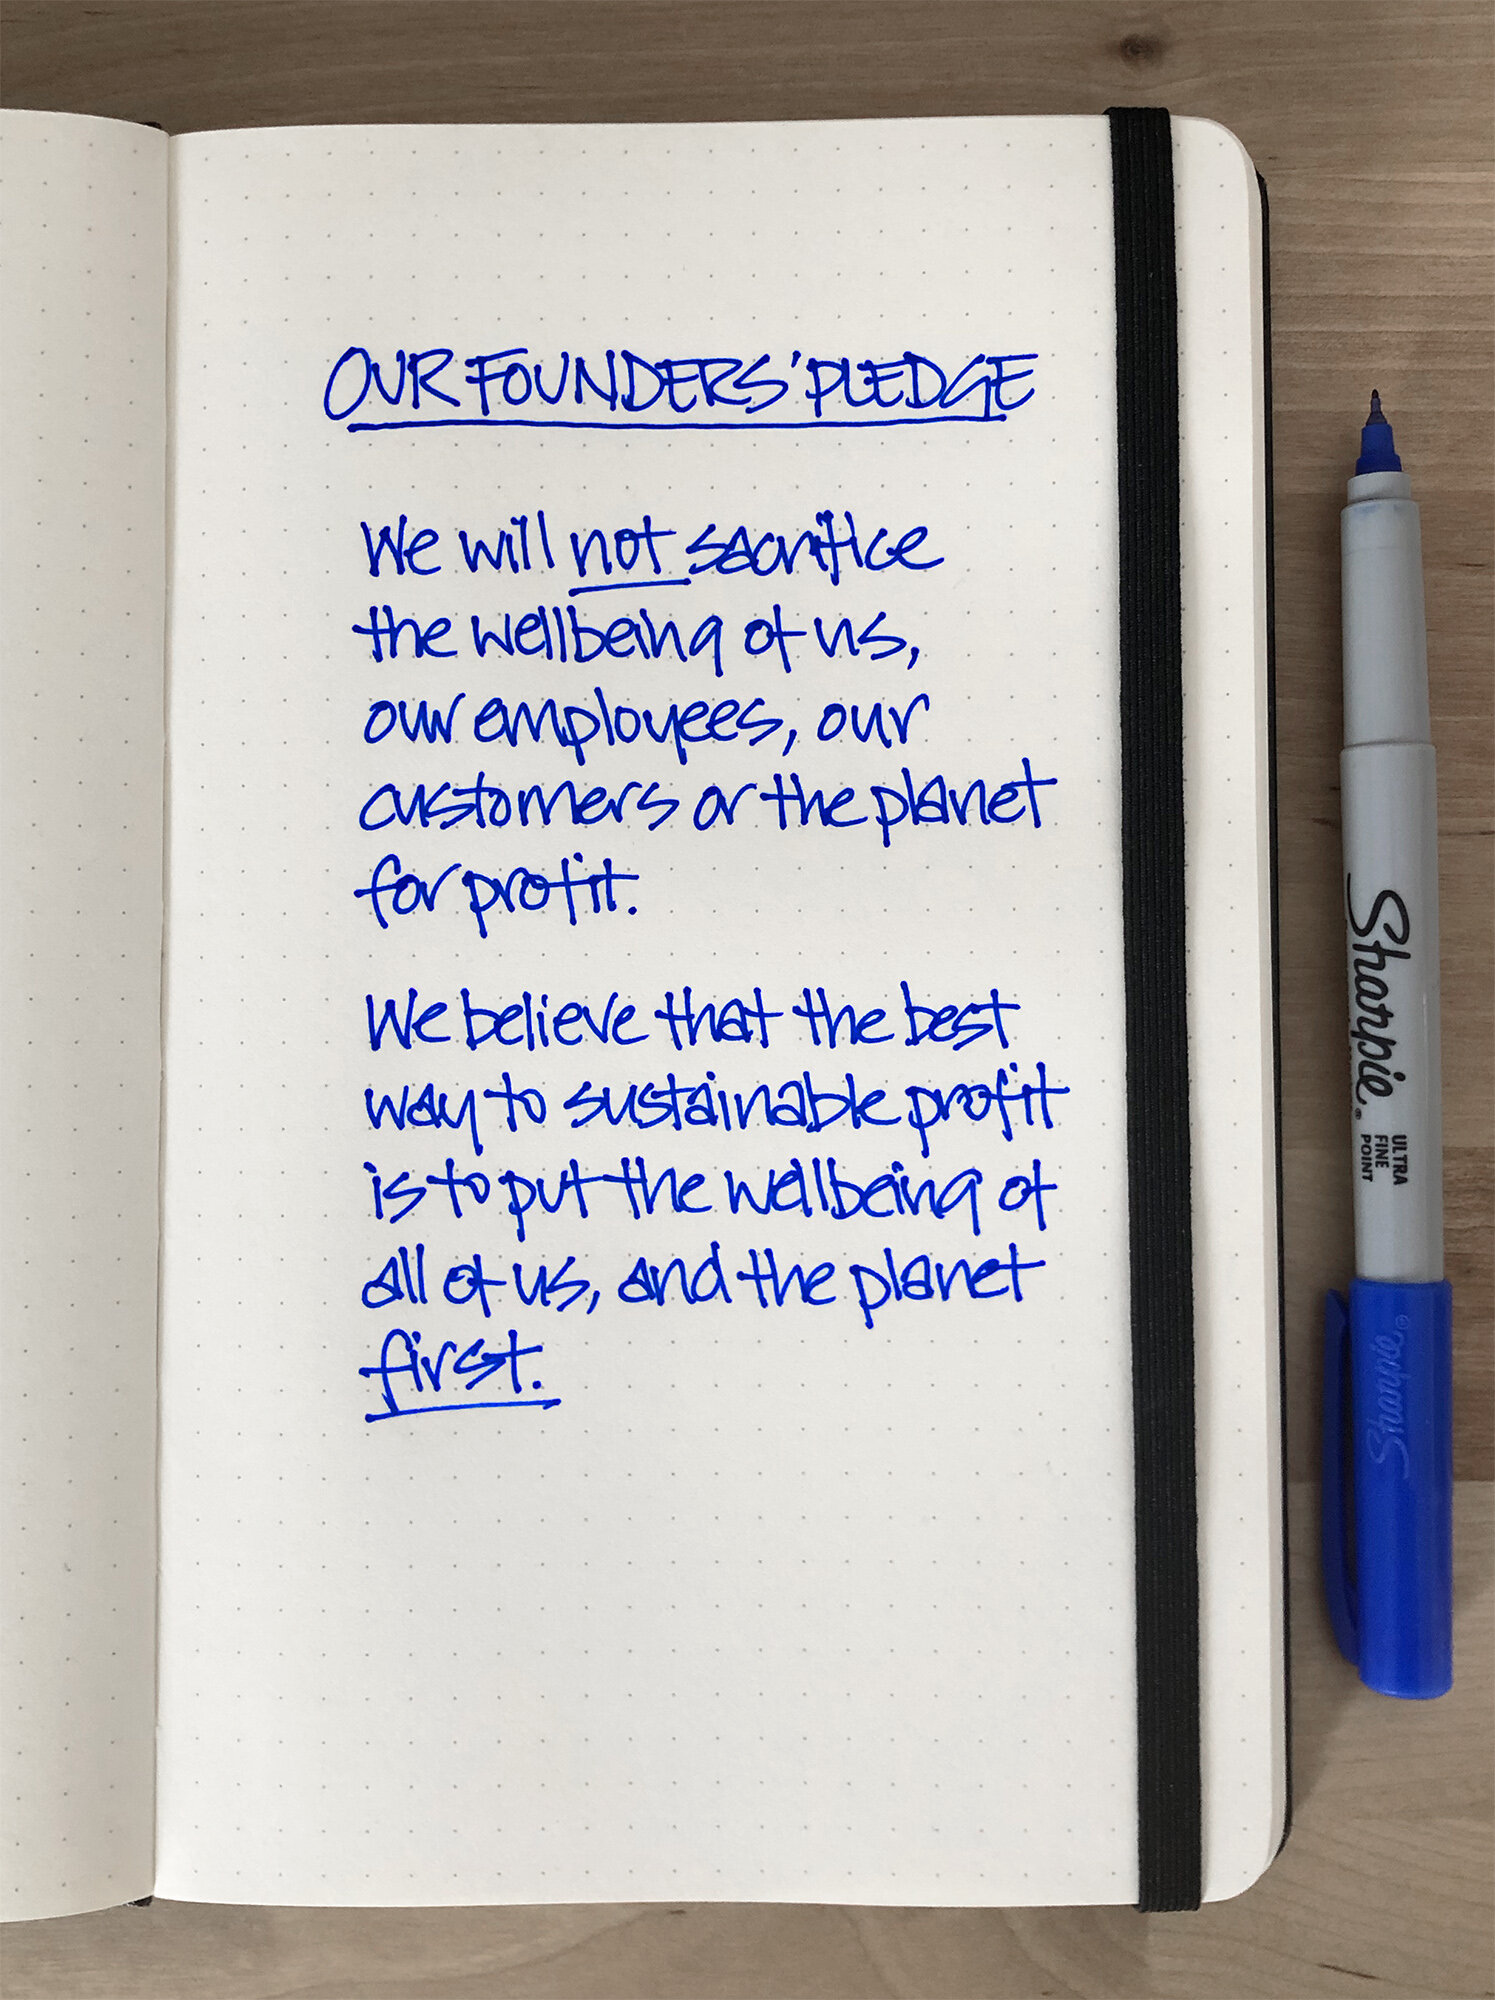 OUR FOUNDERS' PLEDGE
We will not sacrifice
the wellbeing of us,
our employees, our
customers or the planet
for profit.
We believe that the best
way to sustainable profit
is to put the wellbeing of
all of us, and the planet
first.
Sharpie®
ULTRA
FINE
POINT
Sharpie®